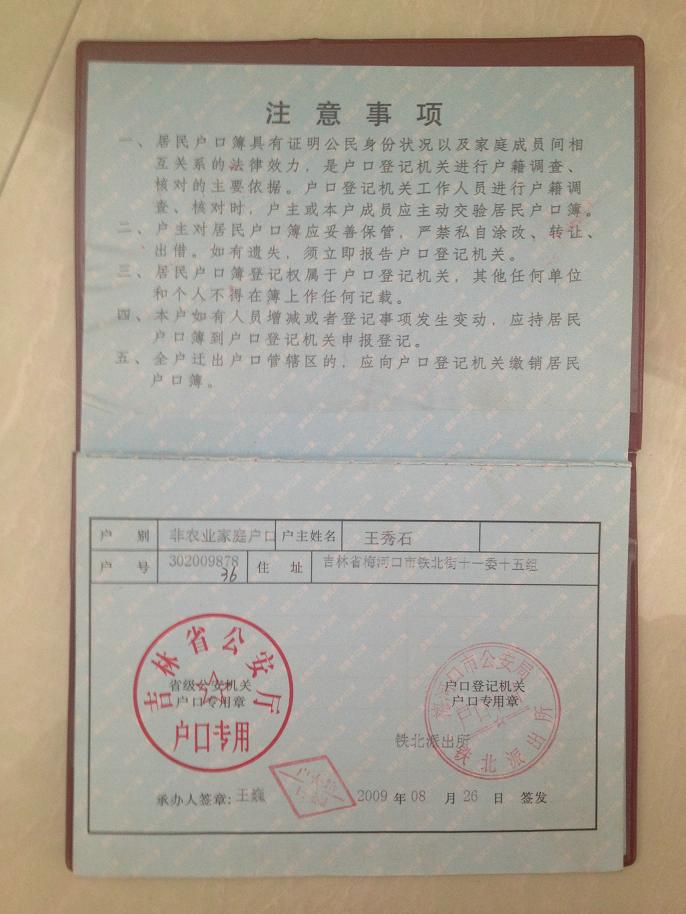 注意事项
一、居民户口簿具有证明公民身份状况以及家庭成员间相
互关系的法律效力，是户口登记机关进行户籍调查、
核对的主要依据。户口登记机关工作人员进行户籍调
查、核对时，户主或本户成员应主动交验居民户口簿。
二、户主对居民户口簿应妥善保管，严禁私自涂改、转让、
出借。如有遗失，须立即报告户口登记机关。
三、居民户口簿登记权属于户口登记机关，其他任何单位
和个人不得在簿上作任何记载。
四、本户如有人员增减或者登记事项发生变动，应持居民
户口簿到户口登记机关申报登记。
五、全户迁出户口管辖区的，应向户口登记机关缴销居民
户口簿。
户 别 非农业家庭户口 户主姓名 王秀石
户 号 302009878 住 址 吉林省梅河口市铁北街十一委十五组
36
吉林省公安厅
省级公安机关
户口专用章
户口专用
梅河口市公安局
户口登记机关
户口专用章
铁北派出所
铁北派出所
承办人签章:王巍 2009 年 08 月 26 日 签发